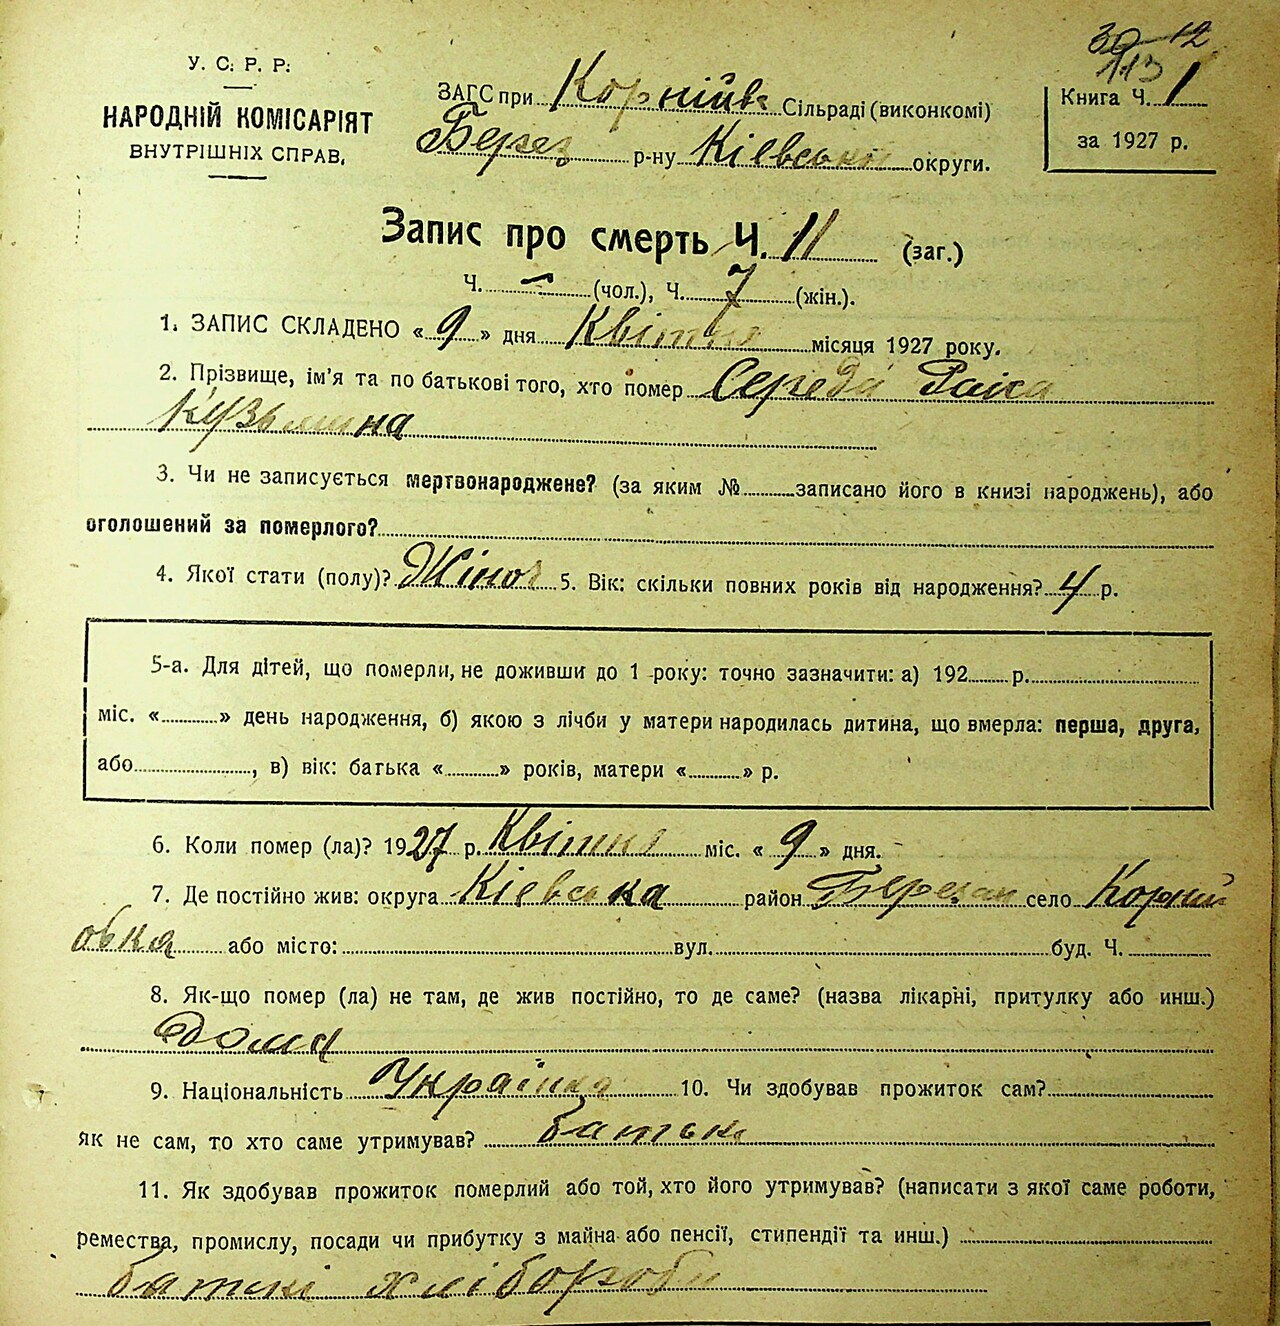 30 12
113
У. С. Р. Р.
НАРОДНІЙ КОМІСАРІЯТ
ВНУТРІШНІХ СПРАВ.
ЗАГС при Корнійвс Сільраді (виконкомі)
Берез р-ну Кіевської округи.
Книга Ч. 1
за 1927 р.
Запис про смерть Ч. 11 (заг.)
Ч. – (чол.), Ч. 7 (жін.).
1. ЗАПИС СКЛАДЕНО « 9 » дня Квітня місяця 1927 року.
2. Прізвище, ім'я та по батькові того, хто помер Середа Раіса
Кузьмина
3. Чи не записується мертвонароджене? (за яким № записано його в книзі народжень), або
оголошений за померлого?
4. Якої стати (полу)? Жіноч 5. Вік: скільки повних років від народження? 4 р.
5-а. Для дітей, що померли, не доживши до 1 року: точно зазначити: а) 192 р.
міс. « » день народження, б) якою з лічби у матери народилась дитина, що вмерла: перша, друга,
або , в) вік: батька « » років, матери « » р.
6. Коли помер (ла)? 1927 р. Квітня міс. « 9 » дня.
7. Де постійно жив: округа Кіевська район Березан село Корній
овка або місто: вул. буд. Ч.
8. Як-що помер (ла) не там, де жив постійно, то де саме? (назва лікарні, притулку або инш.)
Дома
9. Національність Украінка 10. Чи здобував прожиток сам?
Як не сам, то хто саме утримував? батьки
11. Як здобував прожиток померлий або той, хто його утримував? (написати з якої саме роботи,
ремества, промислу, посади чи прибутку з майна або пенсії, стипендії та инш.)
батькі хлібороби